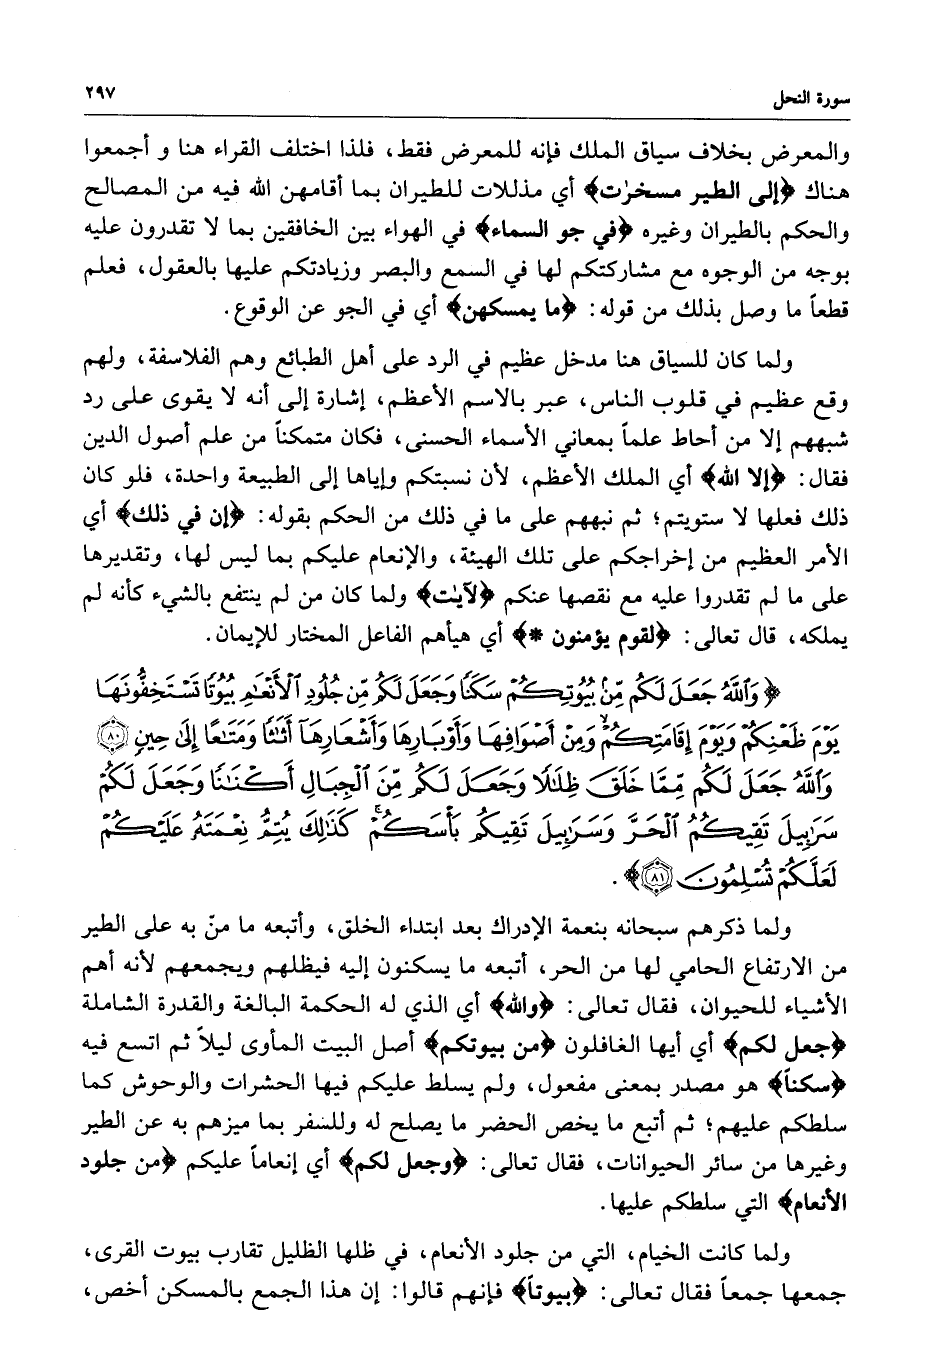 سورة النحل ٢٩٧
والمعرض بخلاف سياق الملك فإنه للمعرض فقط، فلذا اختلف القراء هنا و أجمعوا
هناك ﴿إلى الطير مسخرٰت﴾ أي مذللات للطيران بما أقامهن الله فيه من المصالح
والحكم بالطيران وغيره ﴿في جو السماء﴾ في الهواء بين الخافقين بما لا تقدرون عليه
بوجه من الوجوه مع مشاركتكم لها في السمع والبصر وزيادتكم عليها بالعقول، فعلم
قطعاً ما وصل بذلك من قوله: ﴿ما يمسكهن﴾ أي في الجو عن الوقوع.
ولما كان للسياق هنا مدخل عظيم في الرد على أهل الطبائع وهم الفلاسفة، ولهم
وقع عظيم في قلوب الناس، عبر بالاسم الأعظم، إشارة إلى أنه لا يقوى على رد
شبههم إلا من أحاط علماً بمعاني الأسماء الحسنى، فكان متمكناً من علم أصول الدين
فقال: ﴿إلا الله﴾ أي الملك الأعظم، لأن نسبتكم وإياها إلى الطبيعة واحدة، فلو كان
ذلك فعلها لا ستويتم؛ ثم نبههم على ما في ذلك من الحكم بقوله: ﴿إن في ذلك﴾ أي
الأمر العظيم من إخراجكم على تلك الهيئة، والإنعام عليكم بما ليس لها، وتقديرها
على ما لم تقدروا عليه مع نقصها عنكم ﴿لآيٰت﴾ ولما كان من لم ينتفع بالشيء كأنه لم
يملكه، قال تعالى: ﴿لقوم يؤمنون *﴾ أي هيأهم الفاعل المختار للإيمان.
﴿ وَٱللَّهُ جَعَلَ لَكُم مِّنۢ بُيُوتِكُمْ سَكَنًا وَجَعَلَ لَكُم مِّن جُلُودِ ٱلْأَنْعَٰمِ بُيُوتًا تَسْتَخِفُّونَهَا
يَوْمَ ظَعْنِكُمْ وَيَوْمَ إِقَامَتِكُمْ ۙ وَمِنْ أَصْوَافِهَا وَأَوْبَارِهَا وَأَشْعَارِهَآ أَثَٰثًا وَمَتَٰعًا إِلَىٰ حِينٍ ﴿٨٠﴾
وَٱللَّهُ جَعَلَ لَكُم مِّمَّا خَلَقَ ظِلَٰلًا وَجَعَلَ لَكُم مِّنَ ٱلْجِبَالِ أَكْنَٰنًا وَجَعَلَ لَكُمْ
سَرَٰبِيلَ تَقِيكُمُ ٱلْحَرَّ وَسَرَٰبِيلَ تَقِيكُم بَأْسَكُمْ ۚ كَذَٰلِكَ يُتِمُّ نِعْمَتَهُۥ عَلَيْكُمْ
لَعَلَّكُمْ تُسْلِمُونَ ﴿٨١﴾ ﴾ .
ولما ذكرهم سبحانه بنعمة الإدراك بعد ابتداء الخلق، وأتبعه ما منّ به على الطير
من الارتفاع الحامي لها من الحر، أتبعه ما يسكنون إليه فيظلهم ويجمعهم لأنه أهم
الأشياء للحيوان، فقال تعالى: ﴿والله﴾ أي الذي له الحكمة البالغة والقدرة الشاملة
﴿جعل لكم﴾ أي أيها الغافلون ﴿من بيوتكم﴾ أصل البيت المأوى ليلاً ثم اتسع فيه
﴿سكناً﴾ هو مصدر بمعنى مفعول، ولم يسلط عليكم فيها الحشرات والوحوش كما
سلطكم عليهم؛ ثم أتبع ما يخص الحضر ما يصلح له وللسفر بما ميزهم به عن الطير
وغيرها من سائر الحيوانات، فقال تعالى: ﴿وجعل لكم﴾ أي إنعاماً عليكم ﴿من جلود
الأنعام﴾ التي سلطكم عليها.
ولما كانت الخيام، التي من جلود الأنعام، في ظلها الظليل تقارب بيوت القرى،
جمعها جمعاً فقال تعالى: ﴿بيوتاً﴾ فإنهم قالوا: إن هذا الجمع بالمسكن أخص،